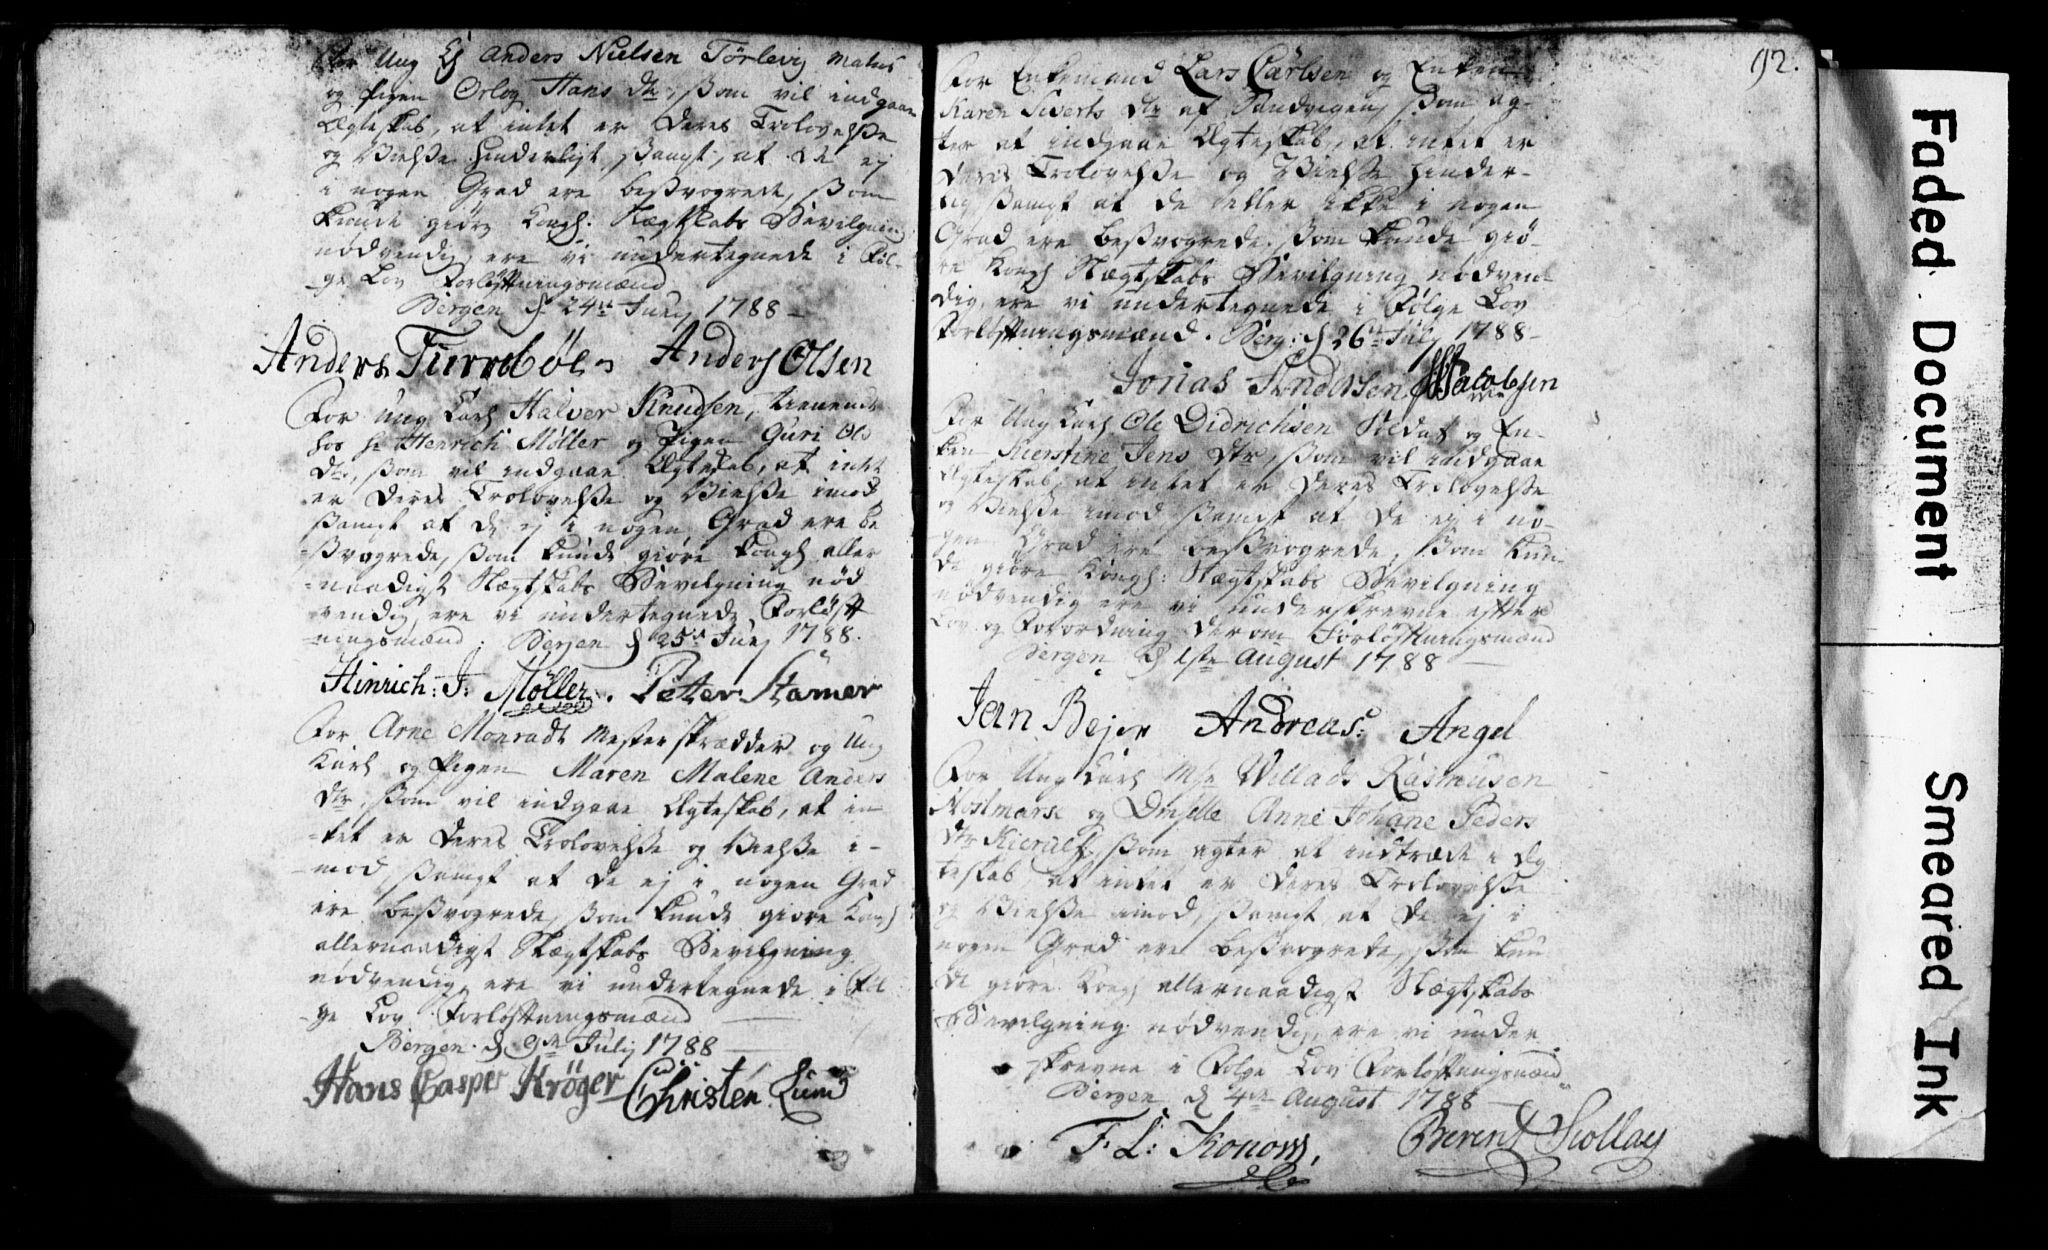 For Ung K. Anders Nielsen Törlevig Matros
og Pigen Orlog Hans Dtr, som vil indgaae
Ægteskab, at intet er deres Trolovelsse
og Vielsse hinderligt, samt, at de ej
i nogen Grad ere besvogrede, som
kunde giöre Kongl: Slægtskabs Bevilgning
nödvendig, ere vi undertegnede i Föl-
ge Lov Forlöftningsmænd
Bergen d 24de Juny 1788 —
Anders Anders Olsen
For Ung Karl Halver Knudsen, tienende
hos Hr Henrich Möller og Pigen Guri Ols
Dtr, som vil indgaae Ægteskab, at intet
er deres Trolovelsse og Vielsse imod
samt at de ej i nogen Grad ere be
svogrede, som kunde giöre Kongl aller
naadigst Slægtskabs Bevilgning nöd
vendig, ere vi undertegnede Forlöft
ningsmænd. Bergen d 25de Juny 1788.
Hinrich: J: Möller. Petter Stamer
For Arne Monradt Mester Skrædder og Ung
Karl og Pigen Maren Malene Anders
Dtr, som vil indgaae Ægteskab, at in
tet er deres Trolovelsse og Vielsse i-
mod, samt at de ej i nogen Grad
ere besvogrede, som kunde giöre Kongl
allernaadigst Slægtskabs Bevilgning
nödvendig, ere vi undertegnede i Föl
ge Lov Forlöftningsmænd —
Bergen d 9de July 1788 —
Hans Casper Kröger Christen Lund
192.
For Enkemand Lars Carlsen og Enken
Karen Siverts Dtr af Sandvigen, som ag-
ter at indgaae Ægteskab, at intet er
deres Trolovelsse og Vielsse hinder-
lig samt at de heller ikke i nogen
Grad ere besvogrede, som kunde giö-
re Kongl Slægtskabs Bevilgning nödven-
dig, ere vi undertegnede i Fölge Lov
Forlöftningsmænd. Berg: d 26de July 1788 —
Jonas Jacobsen
For Ung Karl Ole Didrichsen Soldat og En-
ken Kierstine Jens Dtr, som vil indgaae
Ægteskab, at intet er deres Trolovelsse
og Vielsse imod samt at de ej i no-
gen Grad ere besvogrede, som kun
de giöre Kongl: Slægtskabs Bevilgning
nödvendig ere vi underskrevne efter
Lov og Forordning derom Forlöftningsmænd
Bergen d 1ste August 1788 —
Jean Bejer Andreas: Angel
For Ung Karl Mr Villads Rasmusen
Nostmark og Dmselle Anne Johane Peders
Dtr Kierulf, som agter at indtræde i Æg
teskab, at intet er deres Trolovelsse
og Vielsse imod, samt at de ej i
nogen Grad ere besvogrede, som kun
de giöre Kongl allernaadigst Slægtskabs
Bevilgning nödvendig, ere vi under
skrevne i Fölge Lov Forlöftningsmænd
Bergen d 4de August 1788 —
F. L: Konow, Berent Stollag
Faded Document
Smeared Ink